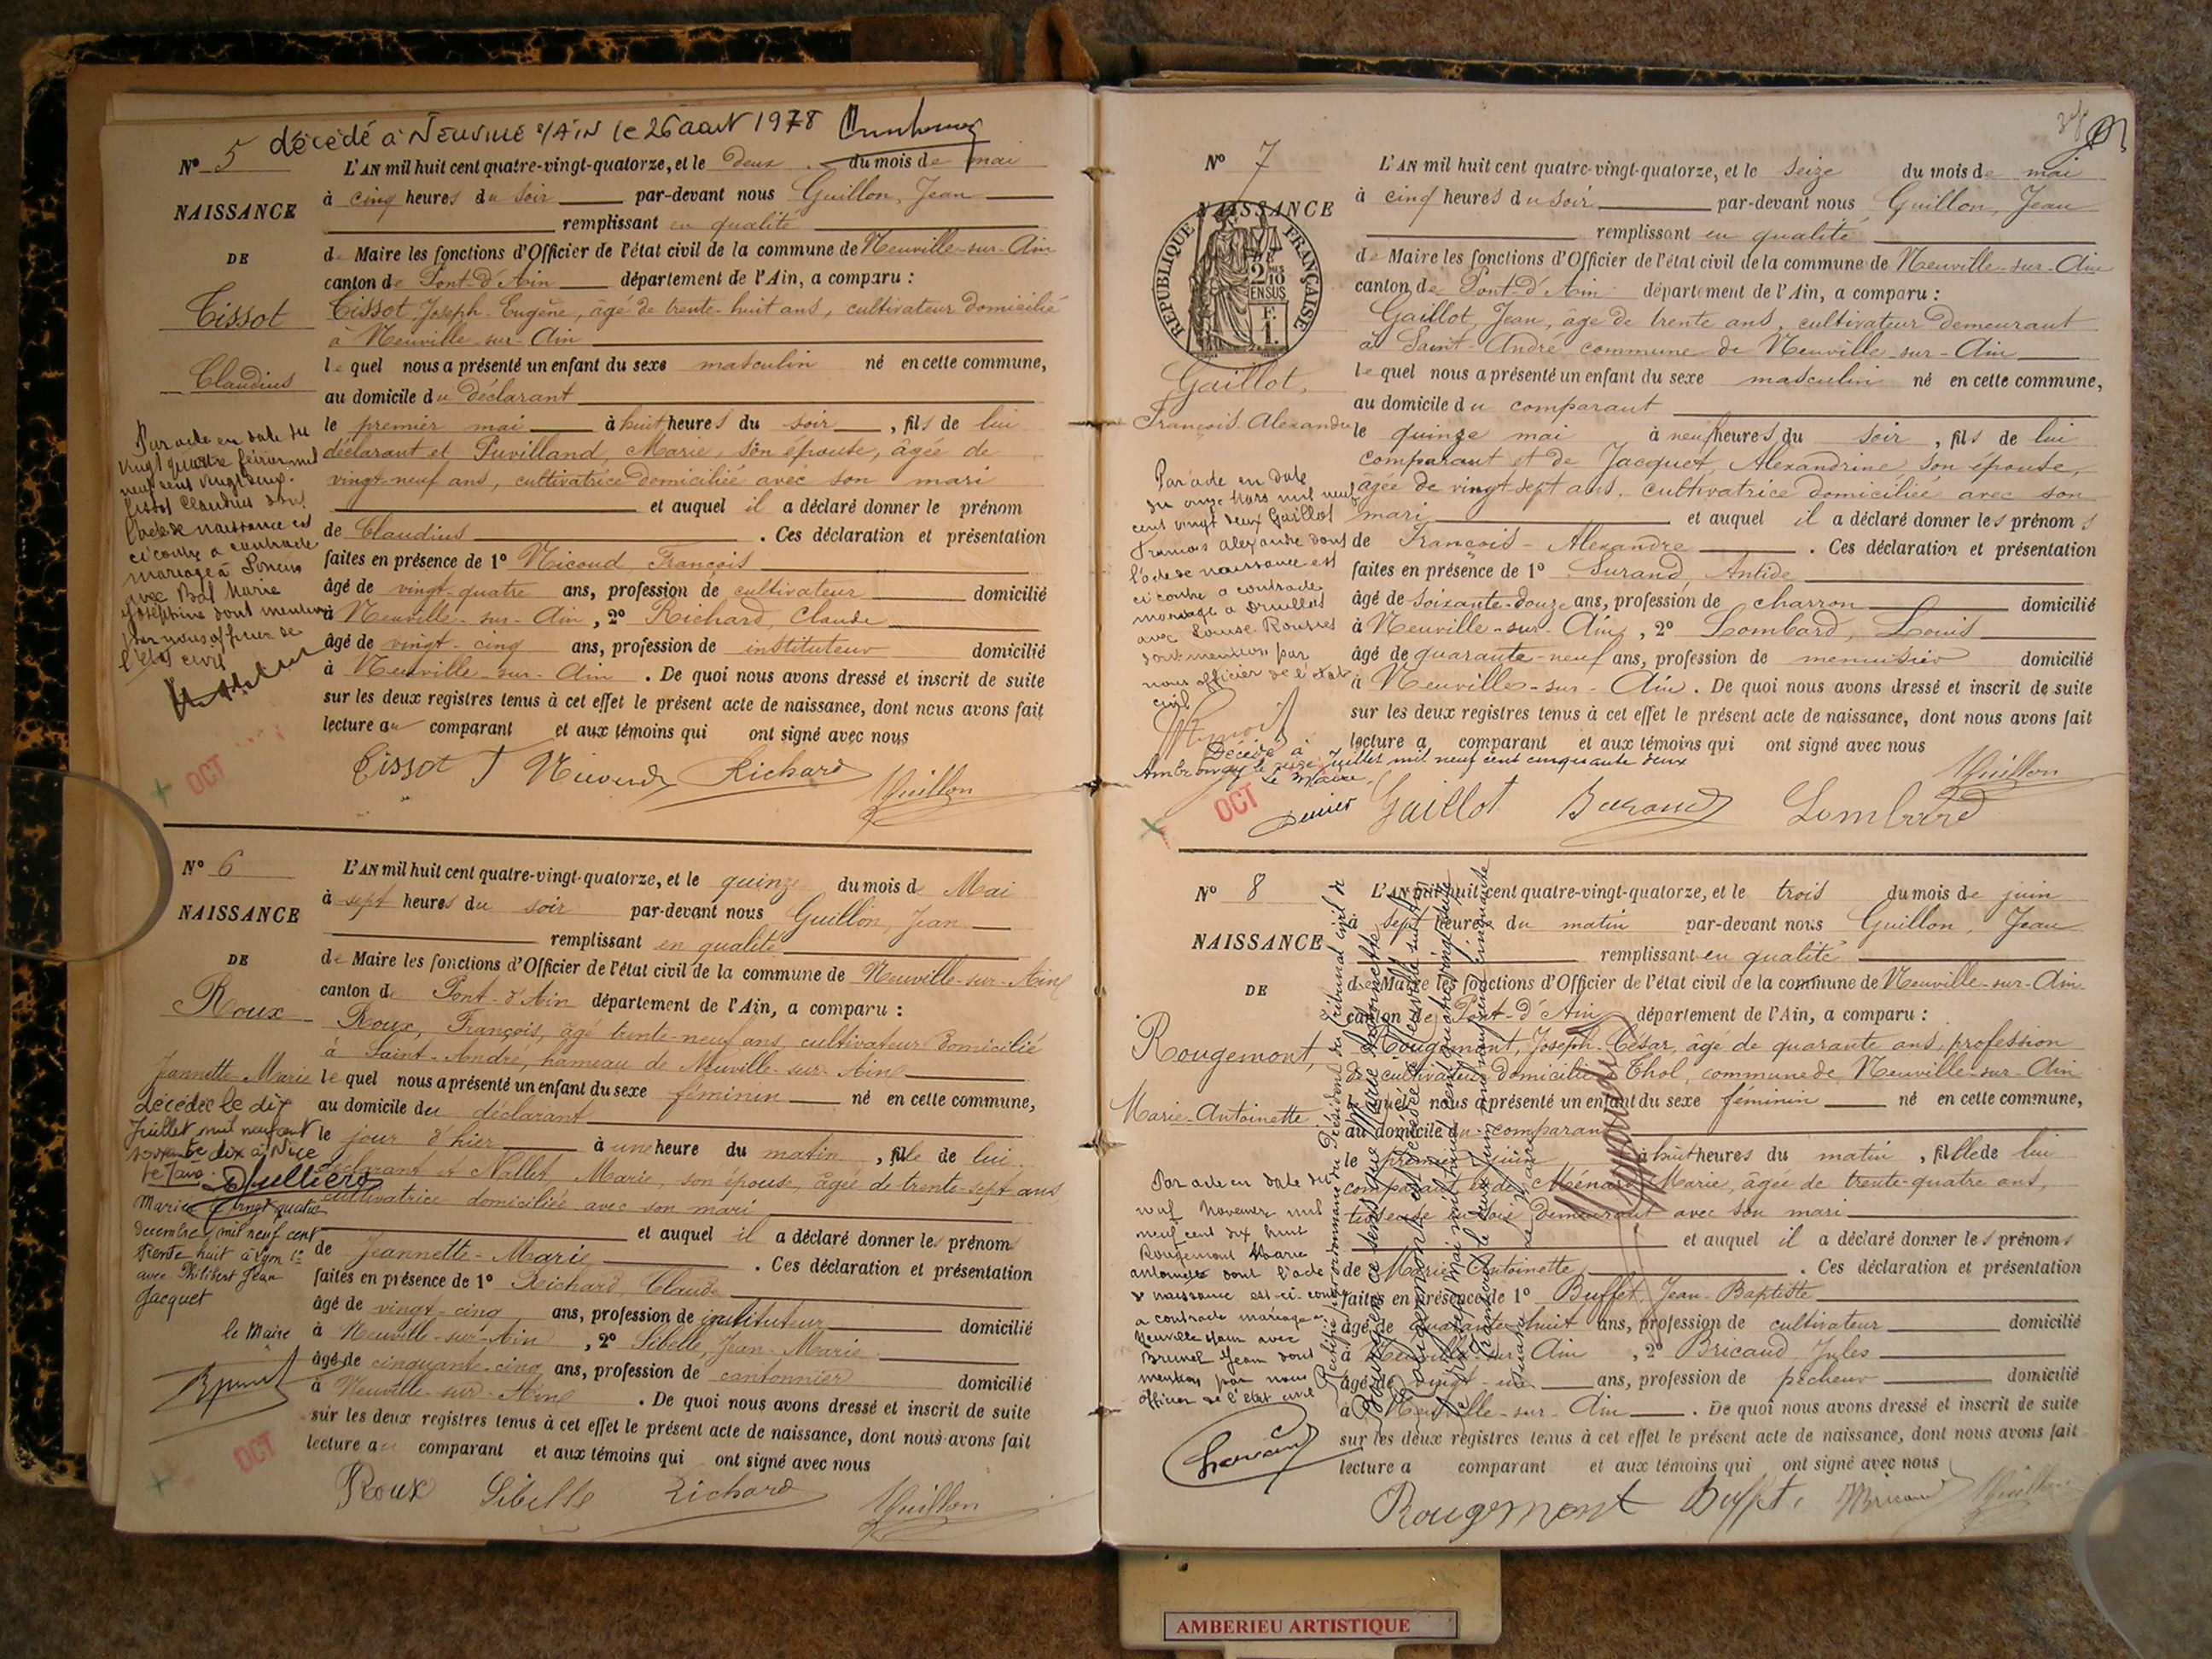 décédé à NEUVILLE s/AIN le 26 aout 1978
N° 5
NAISSANCE
DE
Tissot
Claudius
L'AN mil huit cent quatre-vingt-quatorze, et le deux du mois de mai
à cinq heures du soir par-devant nous Guillon, Jean
remplissant en qualité
de Maire les fonctions d'Officier de l'état civil de la commune de Neuville-sur-Ain
canton de Pont-d'Ain département de l'Ain, a comparu :
Tissot Joseph Eugène, âgé de trente-huit ans, cultivateur domicilié
à Neuville-sur-Ain
lequel nous a présenté un enfant du sexe masculin né en cette commune,
au domicile du déclarant
le premier mai à huit heures du soir, fils de lui
déclarant et Puvilland, Marie, son épouse, âgée de
vingt-neuf ans, cultivatrice domiciliée avec son mari
et auquel il a déclaré donner le prénom
de Claudius. Ces déclaration et présentation
faites en présence de 1° Nicoud, François
âgé de vingt-quatre ans, profession de cultivateur domicilié
à Neuville-sur-Ain, 2° Richard, Claude
âgé de vingt-cinq ans, profession de instituteur domicilié
à Neuville-sur-Ain. De quoi nous avons dressé et inscrit de suite
sur les deux registres tenus à cet effet le présent acte de naissance, dont nous avons fait
lecture au comparant et aux témoins qui ont signé avec nous
Par acte en date du
vingt quatre février mil
neuf cent vingt deux
Tissot Claudius dont
l'acte de naissance est
ci contre a contracté
mariage à
avec Bal Marie
Joséphine dont mention
par nous officier de
l'état civil
OCT
Tissot J Nicoud Richard Guillon
N° 6
NAISSANCE
DE
Roux
Jeannette-Marie
L'AN mil huit cent quatre-vingt-quatorze, et le quinze du mois d Mai
à sept heures du soir par-devant nous Guillon, Jean
remplissant en qualité
de Maire les fonctions d'Officier de l'état civil de la commune de Neuville-sur-Ain
canton de Pont-d'Ain département de l'Ain, a comparu :
Roux, François, âgé trente-neuf ans, cultivateur domicilié
à Saint-André, hameau de Neuville-sur-Ain
lequel nous a présenté un enfant du sexe féminin né en cette commune,
au domicile du déclarant
le jour d'hier à une heure du matin, fille de lui
déclarant et Nallet, Marie, son épouse, âgée de trente-sept ans
cultivatrice domiciliée avec son mari
et auquel il a déclaré donner les prénoms
de Jeannette-Marie. Ces déclaration et présentation
faites en présence de 1° Richard, Claude
âgé de vingt-cinq ans, profession de instituteur domicilié
à Neuville-sur-Ain, 2° Sibelle, Jean-Marie
âgé de cinquante-cinq ans, profession de cantonnier domicilié
à Neuville-sur-Ain. De quoi nous avons dressé et inscrit de suite
sur les deux registres tenus à cet effet le présent acte de naissance, dont nous avons fait
lecture au comparant et aux témoins qui ont signé avec nous
décédée le dix
Juillet mil neuf cent
soixante dix à Nice
Mariée vingt quatre
decembre mil neuf cent
trente huit à Lyon
avec Philibert Jean
Jacquet
le Maire
OCT
Roux Sibelle Richard Guillon
N° 7
NAISSANCE
RÉPUBLIQUE FRANÇAISE
Gaillot,
François Alexandre
L'AN mil huit cent quatre-vingt-quatorze, et le seize du mois de mai
à cinq heures du soir par-devant nous Guillon, Jean
remplissant en qualité
de Maire les fonctions d'Officier de l'état civil de la commune de Neuville-sur-Ain
canton de Pont-d'Ain département de l'Ain, a comparu :
Gaillot, Jean, âgé de trente ans, cultivateur demeurant
à Saint-André commune de Neuville-sur-Ain
lequel nous a présenté un enfant du sexe masculin né en cette commune,
au domicile du comparant
le quinze mai à neuf heures du soir, fils de lui
comparant et de Jacquet, Alexandrine son épouse,
âgée de vingt sept ans, cultivatrice domiciliée avec son
mari et auquel il a déclaré donner les prénoms
de François-Alexandre. Ces déclaration et présentation
faites en présence de 1° Durand, Antide
âgé de soixante-douze ans, profession de charron domicilié
à Neuville-sur-Ain, 2° Lombard, Louis
âgé de quarante-neuf ans, profession de menuisier domicilié
à Neuville-sur-Ain. De quoi nous avons dressé et inscrit de suite
sur les deux registres tenus à cet effet le présent acte de naissance, dont nous avons fait
lecture a comparant et aux témoins qui ont signé avec nous
Par acte en date
du onze Mars mil neuf
cent vingt deux Gaillot
François Alexandre dont
l'acte de naissance est
ci contre a contracté
mariage à Druillat
avec Louise Rousset
dont mention par
nous officier de l'état
civil
Décédé à
Ambronay le seize Juillet mil neuf cent cinquante deux
Le Maire
OCT
Gaillot Durand Lombard Guillon
N° 8
NAISSANCE
DE
Rougemont,
Marie-Antoinette
L'AN mil huit cent quatre-vingt-quatorze, et le trois du mois de juin
à sept heures du matin par-devant nous Guillon, Jean
remplissant en qualité
de Maire les fonctions d'Officier de l'état civil de la commune de Neuville-sur-Ain
canton de Pont-d'Ain département de l'Ain, a comparu :
Rougemont, Joseph-César, âgé de quarante ans, profession
de cultivateur domicilié à Thol, commune de Neuville-sur-Ain
lequel nous a présenté un enfant du sexe féminin né en cette commune,
au domicile du comparant
le premier juin à huit heures du matin, fille de lui
comparant et de Ménard Marie, âgée de trente-quatre ans,
tisseuse en soie demeurant avec son mari
et auquel il a déclaré donner les prénoms
de Marie-Antoinette. Ces déclaration et présentation
faites en présence de 1° Buffet, Jean-Baptiste
âgé de quarante-huit ans, profession de cultivateur domicilié
à Neuville-sur-Ain, 2° Bricaud, Jules
âgé de vingt-un ans, profession de pêcheur domicilié
à Neuville-sur-Ain. De quoi nous avons dressé et inscrit de suite
sur les deux registres tenus à cet effet le présent acte de naissance, dont nous avons fait
lecture a comparant et aux témoins qui ont signé avec nous
Par acte en date du
neuf Novembre mil
neuf cent dix huit
Rougemont Marie
antoinette dont l'acte
de naissance est ci-contre
a contracté mariage à
Neuville s/ain avec
Brunel Jean dont
mention par nous
officier de l'état civil
Rectifié par ordonnance du Président du Tribunal civil de
Bourg en ce sens que Marie Antoinette
Rougemont
Rougemont Buffet Bricaud Guillon
AMBERIEU ARTISTIQUE